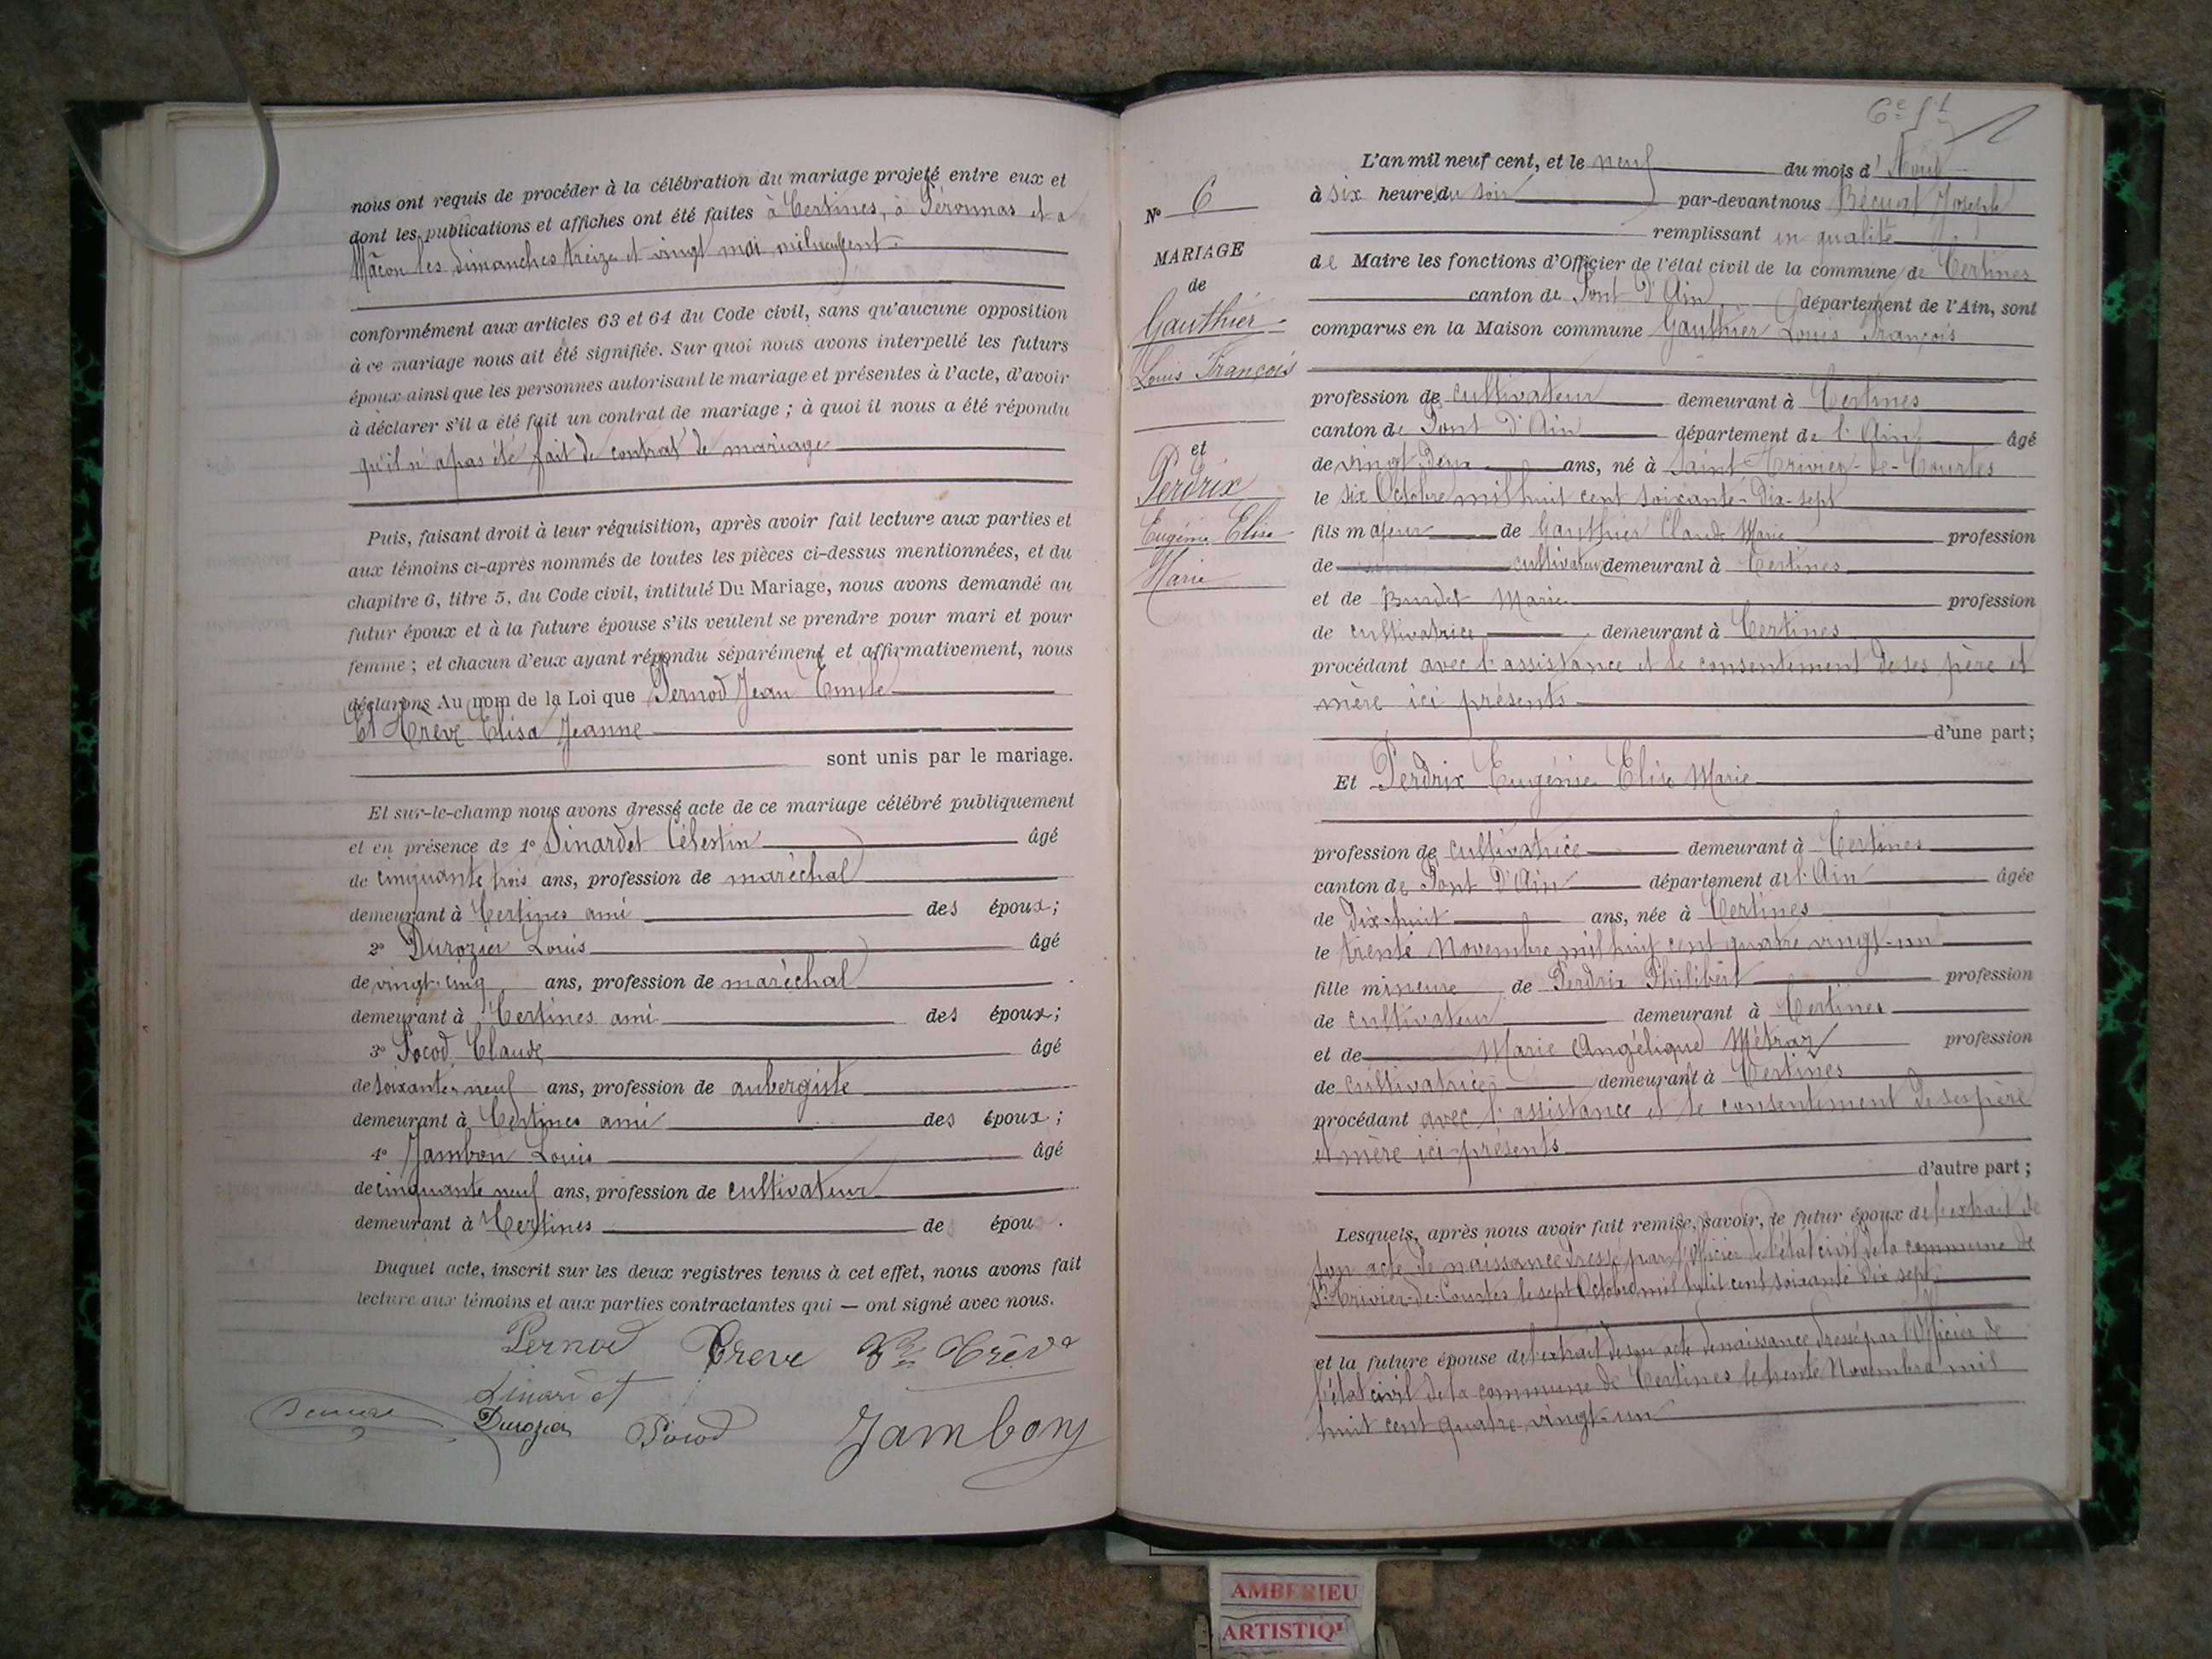 nous ont requis de procéder à la célébration du mariage projeté entre eux et
dont les publications et affiches ont été faites à Certines, à Péronnas et à
Mâcon les dimanches treize et vingt mai mil neuf cent.
conformément aux articles 63 et 64 du Code civil, sans qu'aucune opposition
à ce mariage nous ait été signifiée. Sur quoi nous avons interpellé les futurs
époux ainsi que les personnes autorisant le mariage et présentes à l'acte, d'avoir
à déclarer s'il a été fait un contrat de mariage ; à quoi il nous a été répondu
qu'il n'a pas été fait de contrat de mariage
Puis, faisant droit à leur réquisition, après avoir fait lecture aux parties et
aux témoins ci-après nommés de toutes les pièces ci-dessus mentionnées, et du
chapitre 6, titre 5, du Code civil, intitulé Du Mariage, nous avons demandé au
futur époux et à la future épouse s'ils veulent se prendre pour mari et pour
femme ; et chacun d'eux ayant répondu séparément et affirmativement, nous
déclarons Au nom de la Loi que Pernod Jean Emile
Et Trève Elisa Jeanne
sont unis par le mariage.
Et sur-le-champ nous avons dressé acte de ce mariage célébré publiquement
et en présence de 1° Dinardet Célestin âgé
de cinquante trois ans, profession de maréchal
demeurant à Certines ami des époux ;
2° Durozier Louis âgé
de vingt-cinq ans, profession de maréchal
demeurant à Certines ami des époux ;
3° Pocod Claude âgé
de soixante-neuf ans, profession de aubergiste
demeurant à Certines ami des époux ;
4° Jambon Louis âgé
de cinquante neuf ans, profession de cultivateur
demeurant à Certines de épou .
Duquel acte, inscrit sur les deux registres tenus à cet effet, nous avons fait
lecture aux témoins et aux parties contractantes qui — ont signé avec nous.
Pernod Treve Trève
Dinardet
Durozier Pocod Jambon
6e
N° 6
MARIAGE
de
Gauthier
Louis François
et
Perdrix
Eugénie Elise
Marie
L'an mil neuf cent, et le neuf du mois d' Août
à six heure du soir par-devant nous Bécuat Joseph
remplissant en qualité
de Maire les fonctions d'Officier de l'état civil de la commune de Certines
canton de Pont d'Ain département de l'Ain, sont
comparus en la Maison commune Gauthier Louis François
profession de cultivateur demeurant à Certines
canton de Pont d'Ain département de l'Ain âgé
de vingt-deux ans, né à Saint-Trivier-de-Courtes
le six Octobre mil huit cent soixante-dix-sept
fils majeur de Gauthier Claude Marie profession
de cultivateur demeurant à Certines
et de Buudet Marie profession
de cultivatrice demeurant à Certines
procédant avec l'assistance et le consentement de ses père et
mère ici présents
d'une part ;
Et Perdrix Eugénie Elise Marie
profession de cultivatrice demeurant à Certines
canton de Pont d'Ain département de l'Ain âgée
de dix-huit ans, née à Certines
le trente Novembre mil huit cent quatre vingt-un
fille mineure de Perdrix Philibert profession
de cultivateur demeurant à Certines
et de Marie Angélique Métraz profession
de cultivatrice demeurant à Certines
procédant avec l'assistance et le consentement de ses père
et mère ici présents
d'autre part ;
Lesquels, après nous avoir fait remise, savoir, le futur époux de l'extrait de
son acte de naissance dressé par l'Officier de l'état civil de la commune de
St Trivier-de-Courtes le sept Octobre mil huit cent soixante dix sept
et la future épouse de l'extrait de son acte de naissance dressé par l'Officier de
l'état civil de la commune de Certines le trente Novembre mil
huit cent quatre vingt-un
AMBERIEU
ARTISTIQ